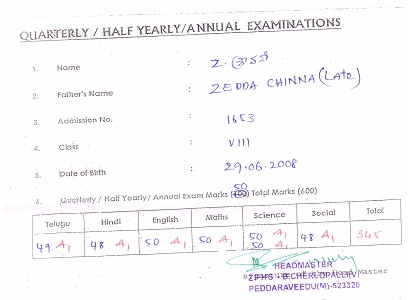 QUARTERLY / HALF YEARLY/ANNUAL EXAMINATIONS
1. Name : Z.
2. Father's Name : ZEDDA CHINNA (Late)
3. Admission No. : 1653
4. Class : VIII
5. Date of Birth : 29.06.2008
50
6. Quarterly / Half Yearly/ Annual Exam Marks (100) Total Marks (600)
Telugu Hindi English Maths Science Social Total
49 A1 48 A1 50 A1 50 A1 50 A1 50 A1 48 A1 345
HEADMASTER
Head Master
PEDDARAVEEDU(M)-523320